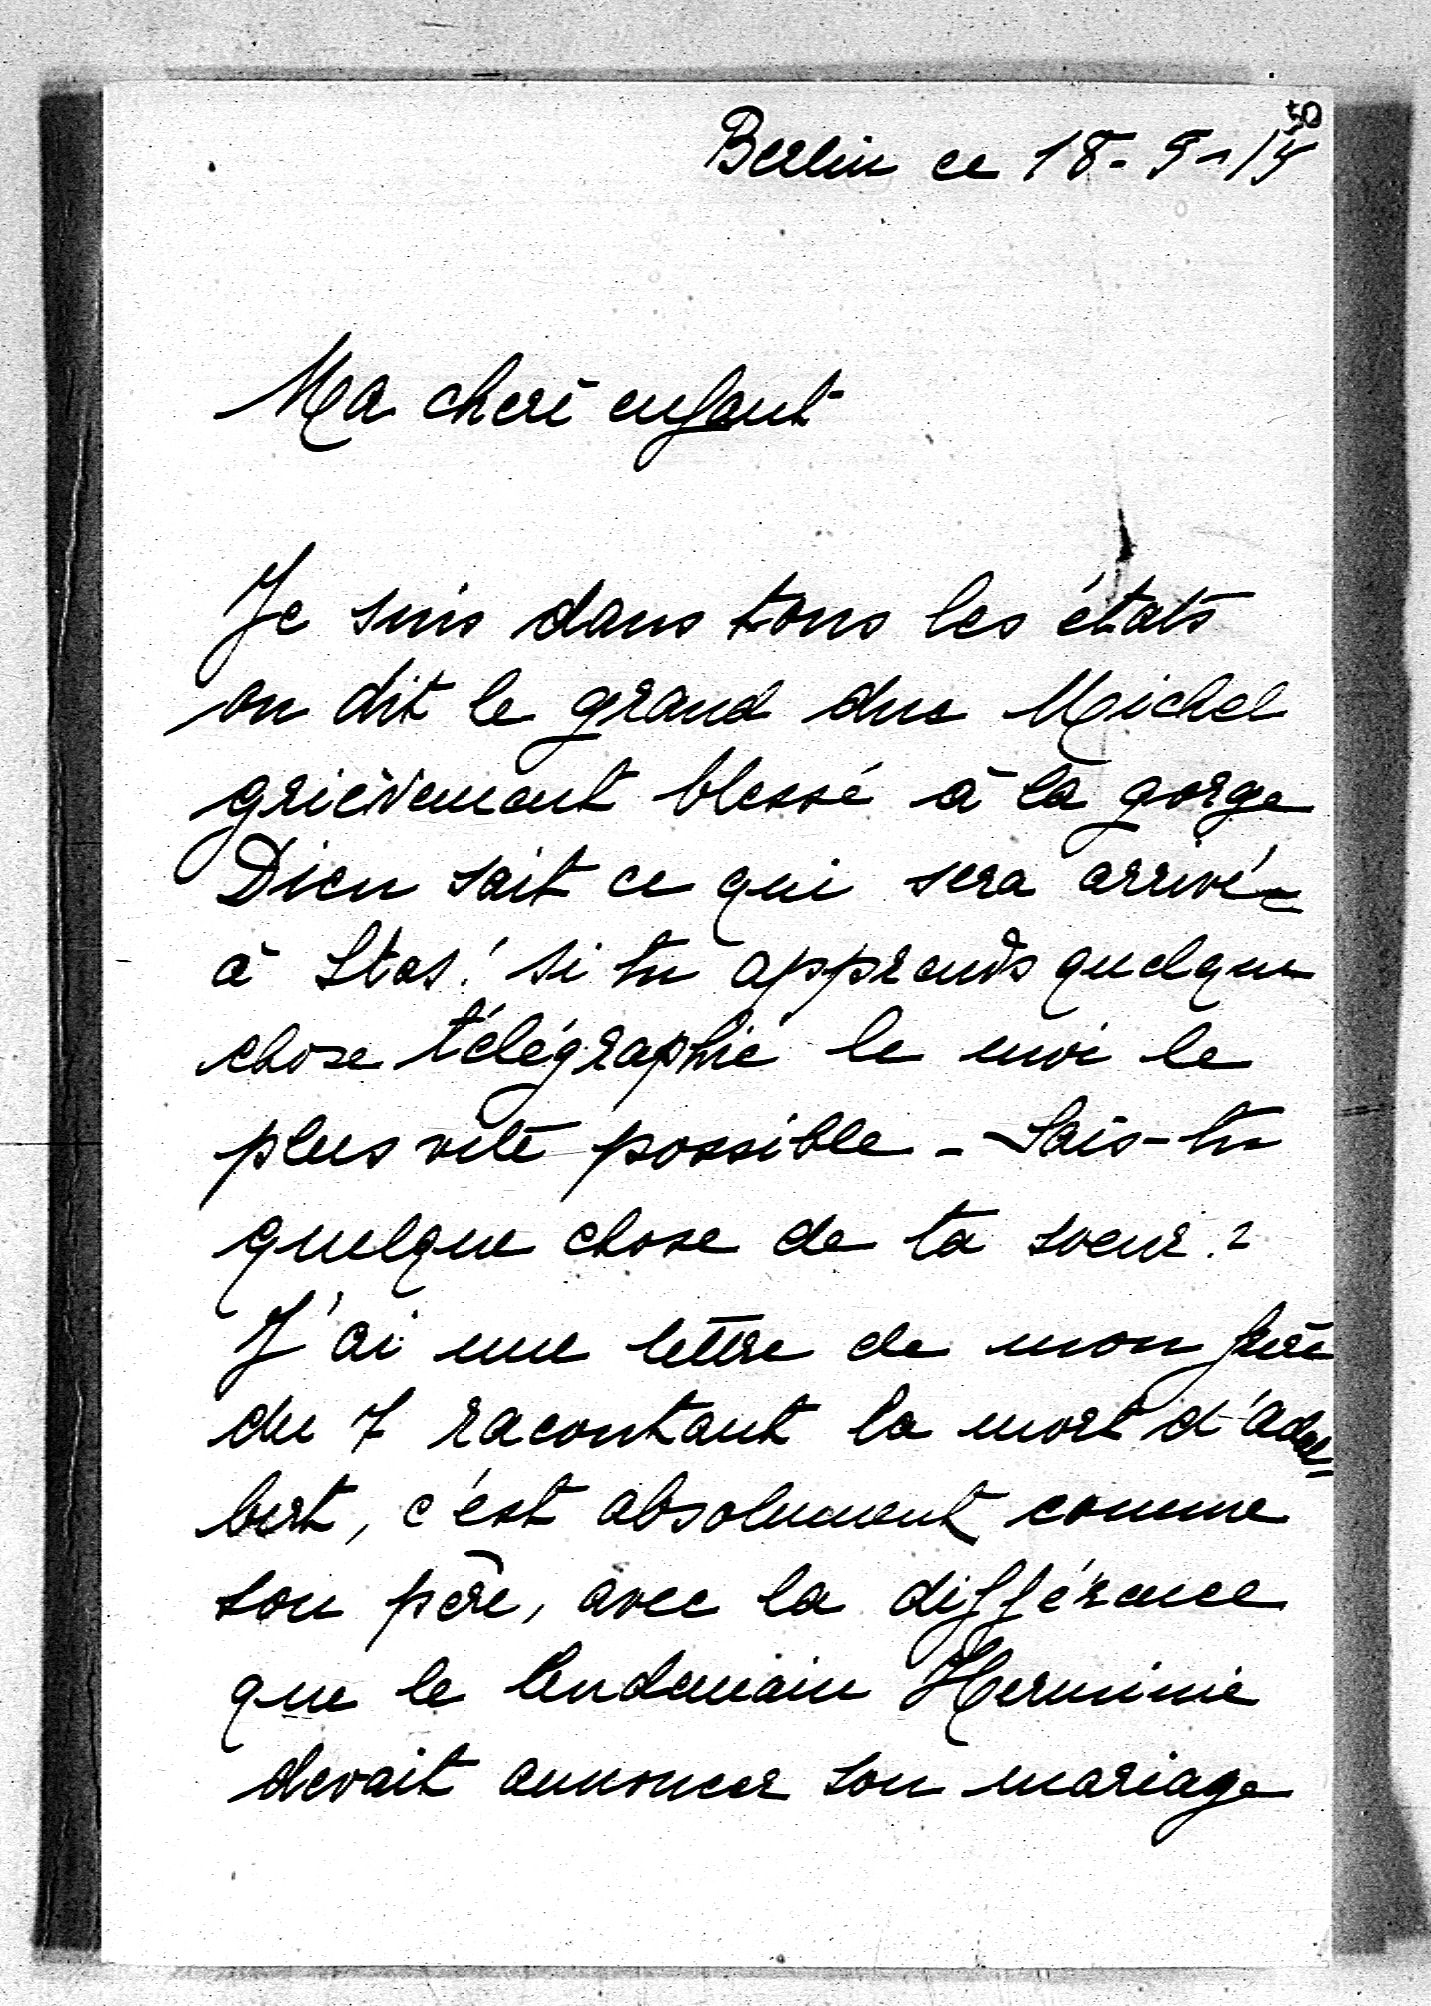 50
Berlin ce 18-9-15
Ma cherè enfant
Je suis dans tous les états
on dit le grand duc Michel
grièvement blessé à la gorge
Dieu sait ce qui sera arrivé
à Stas! si tu apprends quelque
chose télégraphie le moi le
plus vite possible - Sais-tu
quelque chose de ta soeur?
J'ai une lettre de mon frère
du 7 racontant la mort d'Adal=
bert, c'est absolument comme
son père, avec la différence
que le lendemain Herminie
devait annoncer son mariage